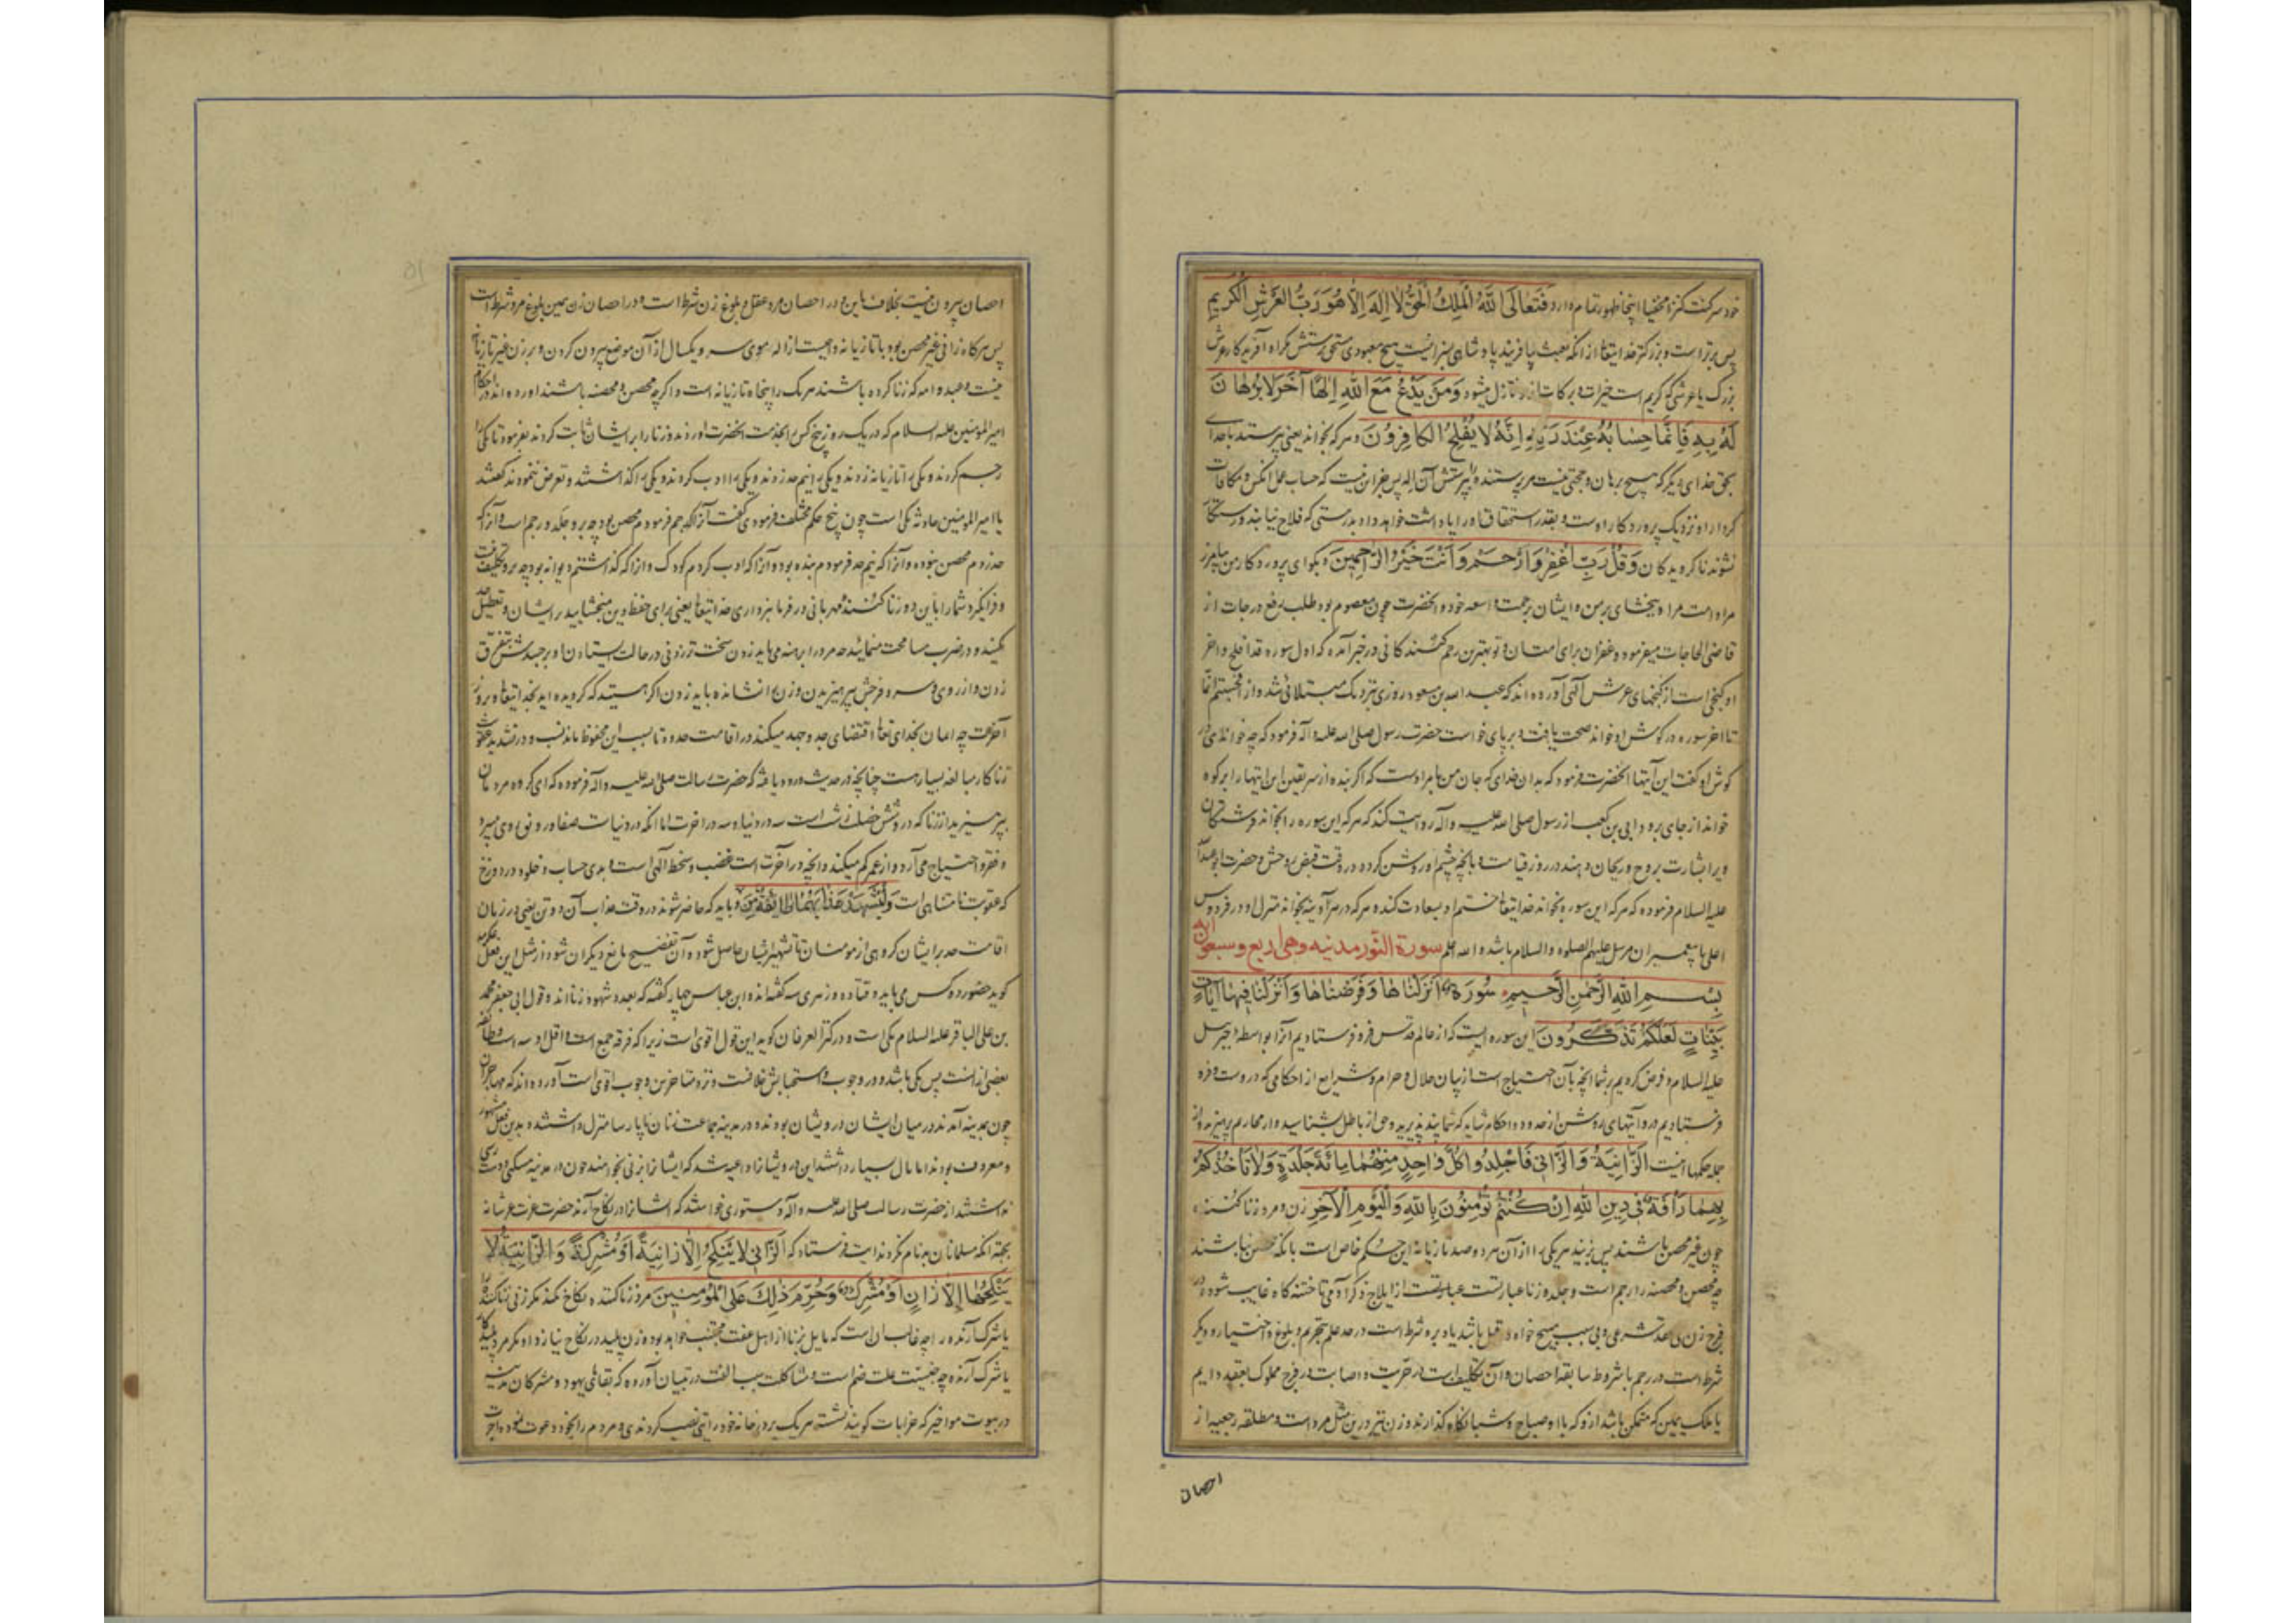 خود سر کنت کنزا مخفیا اینجا ظهور تمام دارد فَتَعالَى اللَّهُ الْمَلِكُ الْحَقُّ لا إِلهَ إِلَّا هُوَ رَبُّ الْعَرْشِ الْكَرِيمِ
پس برتر است و بزرگتر خدایتعا از انکه بعبث بیافریند پادشاهی سزا نیست هیچ معبودی مستحق پرستش مکر او آفریدکار عرش
بزرک یا عرشی که کریم است خیرات و برکات ازو نازل میشود وَمَنْ يَدْعُ مَعَ اللَّهِ إِلهًا آخَرَ لا بُرْهانَ
لَهُ بِهِ فَإِنَّما حِسابُهُ عِنْدَ رَبِّهِ إِنَّهُ لا يُفْلِحُ الْكافِرُونَ و هر که بخواند یعنی بپرستد با خدای
بحق خدای دیکر که هیچ برهان و حجتی نیست مر پرستنده را بپرستش آن اله پس جز این نیست که حساب عمل انکس و مکافات
کردار او نزدیک پروردکار اوست و بقدر استحقاق او را پاداشت خواهد داد بدرستی که فلاح نیابند و رستکار
نشوند ناکرویدکان وَقُلْ رَبِّ اغْفِرْ وَارْحَمْ وَأَنْتَ خَيْرُ الرَّاحِمِينَ و بکو ای پروردکار من بیامرز
مرا و امت مرا و ببخشای بر من و ایشان برحمت واسعه خود و انحضرت چون معصوم بود طلب رفع درجات از
قاضی الحاجات میفرمود و غفران برای امتان و تو بهترین رحم کنندکانی در خبر آمده که اول سوره قد افلح و اخر
او کنجی است از کنجهای عرش آلهی آورده اند که عبد الله بن مسعود روزی بنزدیک مبتلائی شد و از افحسبتم انما
تا اخر سوره در کوش او خواند صحت یافت و برپای خواست حضرت رسول صلی الله علیه و آله فرمود که چه خواندی در
کوش او کفت این آیتها انحضرت فرمود که بدان خدای که جان من بامر اوست که اکر بنده از سر یقین این ایتها را بر کوه
خواند از جای برود ابی بن کعب از رسول صلی الله علیه و آله روایت کند که هر که این سوره را بخواند فرشتکان
ویرا بشارت بروح و ریحان دهند در روز قیامت و بانچه چشم او روشن کردد در وقت قبض روحش و حضرت ابو عبدالله
علیه السلام فرموده که هر که این سوره بخواند خدایتعا ختم او بسعادت کند و هر که در هر آدینه بخواند منزل او در فردوس
اعلی با پیغمبران مرسل علیهم الصلوه والسلام باشد و الله اعلم سورة النور مدنیه وهی اربع وسبعون ایه
بِسْمِ اللَّهِ الرَّحْمنِ الرَّحِيمِ سُورَةٌ أَنْزَلْناها وَفَرَضْناها وَأَنْزَلْنا فِيها آياتٍ
بَيِّناتٍ لَعَلَّكُمْ تَذَكَّرُونَ این سوره ایست که از عالم قدس فرو فرستادیم آنرا بواسطه جبرئیل
علیه السلام و فرض کردیم بر شما انچه بآن احتیاج است از بیان حلال و حرام و شرایع از احکامی که دروست و فرو
فرستادیم درو آیتهای روشن از حدود و احکام شاید که شما پند پذیرید و حق از باطل بشناسید و از محارم بپرهیزید و از
جمله حکمها اینست الزَّانِيَةُ وَالزَّانِي فَاجْلِدُوا كُلَّ واحِدٍ مِنْهُما مِائَةَ جَلْدَةٍ وَلا تَأْخُذْكُمْ
بِهِما رَأْفَةٌ فِي دِينِ اللَّهِ إِنْ كُنْتُمْ تُؤْمِنُونَ بِاللَّهِ وَالْيَوْمِ الْآخِرِ زن و مرد زنا کننده
چون غیر محصن باشند پس بزنید هر یکی را از آن هر دو صد تازیانه این حکم خاص است بانکه محصن نباشند
چه محصن و محصنه را رجم است و جلد و زنا عبارتست از ایلاج ذکر آدمی تا ختنه کاه غایب شود در
فرج زن بی عقد شرعی و بی سبب مبیح خواه در قبل باشد یا دبر و شرط است در حد علم بتحریم و بلوغ و اختیار و دیکر
شرط است در رجم با شروط سابقه احصان و آن تکلیف است و حریت و اصابت در فرج مملوک بعقد دایم
یا ملک یمین که متمکن باشد ازو که بااو صباح و شبانکاه کذارند و زن نیز درین مثل مرد است و مطلقه رجعیه از
احصان
احصان بیرون نیست بخلاف باین و در احصان مرد عقل و بلوغ زن شرط است و در احصان زن همین بلوغ مرد شرط است
پس هرکاه زانی غیر محصن بود با تازیانه واجبست ازاله موی سر و یکسال از آن موضع بیرون کردن و بر زن غیر تازیانه
نیست و عبد و امه که زنا کرده باشند هر یک را پنجاه تازیانه است و اکرچه محصن و محصنه باشند و اورده اند در احکام
امیر المومنین علیه السلام که در یک روز پنج کس را بخدمت انحضرت اوردند و زنا را بر ایشان ثابت کردند بفرمود تا یکی را
رجم کردند و یکی را تازیانه زدند و یکی را نیم حد زدند و یکی را ادب کردند و یکی را کذاشتند و تعرض ننمودند کفتند
یا امیر المومنین حادثه یکی است چون پنج حکم مختلف فرمودی کفت آنرا که رجم فرمودم محصن بود چه برو جلد و رجم است و آنرا که
حد زدم محصن نبوده و آنرا که نیم حد فرمودم بنده بود و آنرا که ادب کردم کودک و انرا که کذاشتم دیوانه بود چه برو تکلیف نیست
و فرانکیرد شما را باین دو زنا کننده مهربانی در فرمانبرداری خدایتعا یعنی برای حفظ دین مبخشایید بر ایشان و تعطیل حد
مکنید و در ضرب مسامحت منمائید حد مرد را برهنه می باید زدن سخت تر زدنی در حالت ایستادن او بر جسدش متفرق
زدن و از روی و سر و فرجش پرهیزیدن و زن را نشانده باید زدن اکر هستید که کرویده اید بخدایتعا و بروز
آخرت چه ایمان بخدای تعا اقتضای جد و جهد میکند در اقامت حدود تا بسبب این محفوظ ماند نسب و در تشدید عقوبت
زناکار مبالغه بسیار هست چنانچه در حدیث ورود یافته که حضرت رسالت صلی الله علیه و آله فرموده که ای کروه مردمان
بپرهیزید از زنا که در و شش خصلت زشت است سه در دنیا و سه در اخرت اما انکه در دنیاست صفا و رونق روی میبرد
و فقر و احتیاج می آرد و از عمر کم میکند و انچه در آخرت است غضب و سخط آلهی است و بدی حساب و خلود در دوزخ
که عقوبت نامتناهی است وَلْيَشْهَدْ عَذابَهُما طائِفَةٌ مِنَ و باید که حاضر شوند در وقت عذاب آن دو تن یعنی در زمان
اقامت حد بر ایشان کروهی از مومنان تا تشهیر ایشان حاصل شود و آن تفضیح مانع دیکران شود از مثل این فعل عکرمه
کوید حضور دو کس می باید و قتاده و زهری سه کفته اند و ابن عباس چهار کفته که بعدد شهود زنااند و قول ابی جعفر محمد
بن علی الباقر علیه السلام یکی است و در کنز العرفان کوید این قول اقوی است زیرا که فرقه جمیع است و اقل او سه است و طائفه
بعضی از انست پس یکی باشد و در وجوب و استحبابش خلافست و نزد متاخرین وجوب اقوی است آورده اند که مهاجران
چون بمدینه آمدند در میان ایشان درویشان بودند و در مدینه جماعت زنان ناپارسا منزل داشتند و بدین فعل مشهور
و معروف بودند اما مال بسیار داشتند این درویشانرا داعیه شد که ایشانرا بزنی بخواهند چون در مدینه مسکنی و دسترسی
نداشتند از حضرت رسالت صلی الله علیه و آله دستوری خواستند که ایشانرا در نکاح آرند حضرت عزت عز شانه
بجهة انکه مسلمانان بدنام نکردند ایت فرستاد که الزَّانِي لا يَنْكِحُ إِلَّا زانِيَةً أَوْ مُشْرِكَةً وَالزَّانِيَةُ لا
يَنْكِحُها إِلَّا زانٍ أَوْ مُشْرِكٌ وَحُرِّمَ ذلِكَ عَلَى الْمُؤْمِنِينَ مرد زنا کننده نکاح نکند مکر زنی زناکننده را
یا شرک آرنده را چه غالب ان است که مایل بزنا از اهل عفت مجتنب خواهد بود و زن پلید در نکاح نیارد او را مکر مرد پلیدکار
یا شرک آرنده چه جنسیت علت ضم است و مشاکلت سبب الفت در تبیان آورده که بقایای یهود و مشرکان مدینه
در بیوت مواخیر که خرابات کویند نشسته هر یک بر در خانه خود رایتی نصب کردندی و مردم را بخود دعوت نموده اجرت